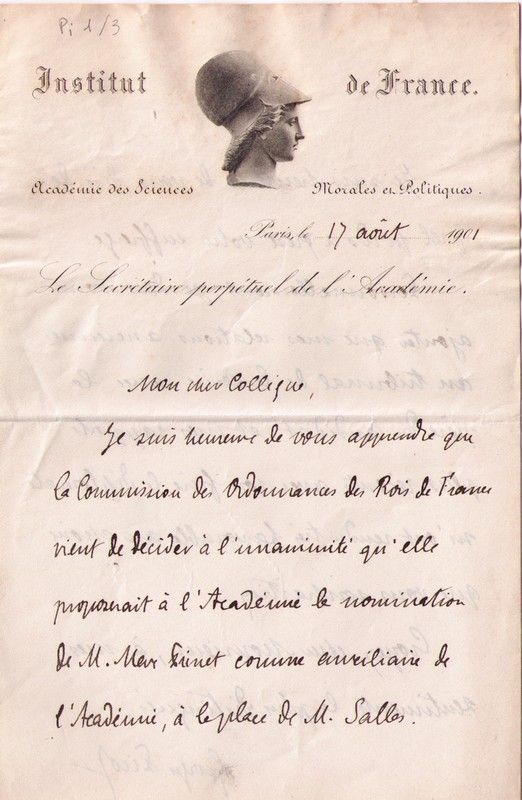 Pi 1/3
Institut de France.
Académie des Sciences Morales et Politiques.
Paris, le 17 août 1901
Le Secrétaire perpétuel de l'Académie.
Mon cher Collègue,
Je suis heureux de vous apprendre que
la Commission des Ordonnances des Rois de France
vient de décider à l'unanimité qu'elle
proposerait à l'Académie la nomination
de M. Max comme auxiliaire de
l'Académie, à la place de M. Salles.